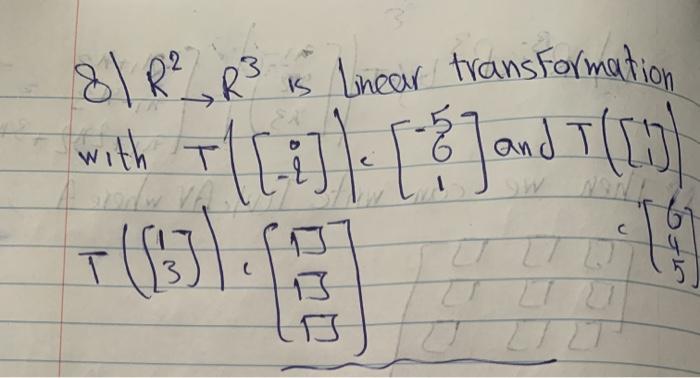 8) R² → R³ is Linear transformation
with T([0 -2]) = [-5 6 1] and T([1 1]) = [6 4 5]
T([1 3]) = [□ □ □]